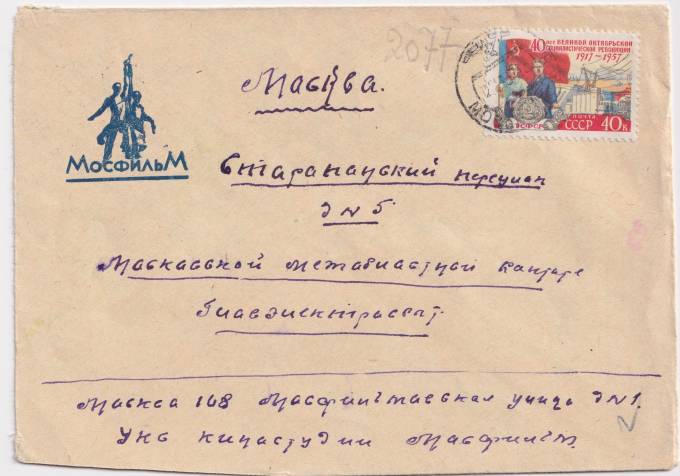 2077
40 лет ВЕЛИКОЙ ОКТЯБРЬСКОЙ
СОЦИАЛИСТИЧЕСКОЙ РЕВОЛЮЦИИ
1917-1957
РСФСР
ПОЧТА
СССР 40к
МОСФИЛЬМ
Масква.
Старапанский перецлок
д N 5
Маскавской межабластной канторе
Главэлектрасбыт
Москва 108 Масфильмавская улица д N 1.
УКС кинастудии Масфильм.